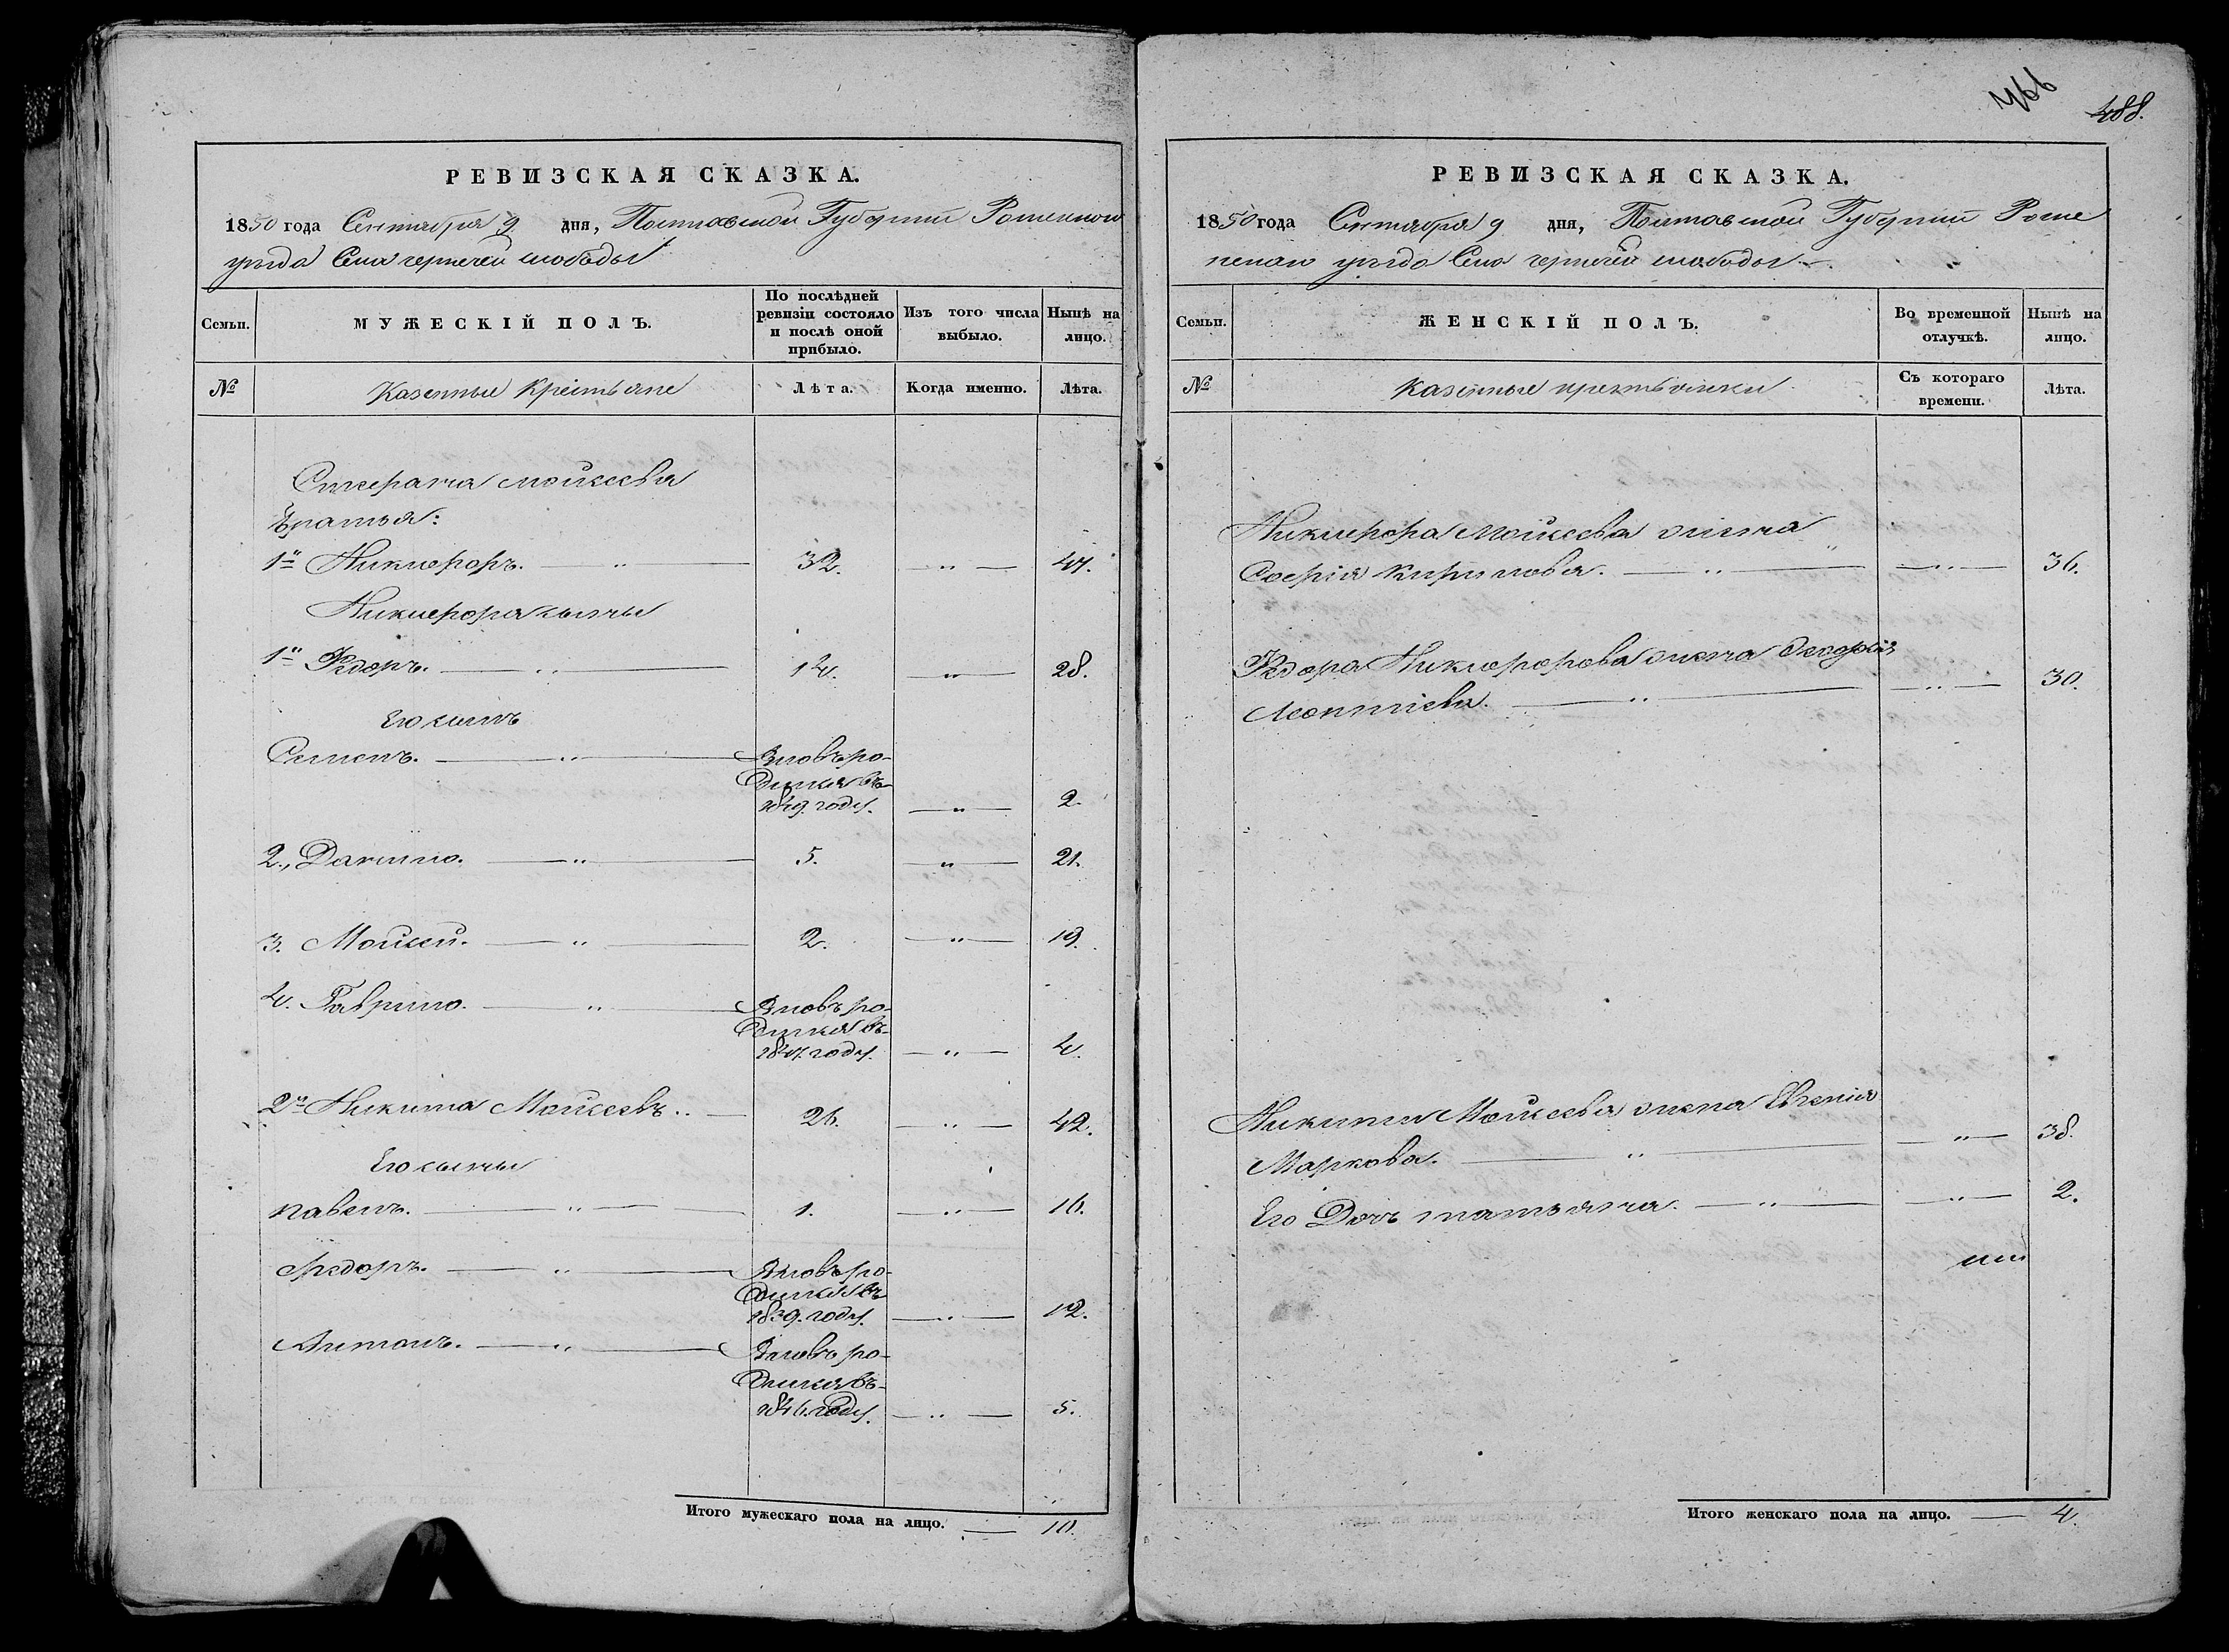 РЕВИЗСКАЯ СКАЗКА.
1850 года Сентября 9 дня, Полтавской Губернии Роменского
уезда Села черначей слободы
Семьи.
МУЖЕСКІЙ ПОЛЪ.
По послѣдней ревизіи состояло и послѣ оной прибыло.
Изъ того числа выбыло.
Нынѣ на лицо.
№
Казенные Крестьяне
Лѣта.
Когда именно.
Лѣта.
Моисеева
братья:
1й Никифоръ. — " — 32. — " — 47.
Никифора сыны
1й Федоръ. — " — 12. — " — 28.
Его сынъ
Семенъ. — " — Вновь ро-
дился въ
1849. году. — " — 2.
2., Данило. — " — 5. — " — 21.
3. Мойсей. — " — 2. — " — 19.
4. Гаврило. — " — Вновь ро-
дился въ
1847. году. — " — 4.
2й Никита Мойсеевъ. — 26. — " — 42.
Его сыны
Павелъ. — " — 1. — " — 16.
Федоръ. — " — Вновь ро-
дился въ
1839. году. — " — 12.
Антонъ. — " — Вновь ро-
дился въ
1846. году. — " — 5.
Итого мужескаго пола на лицо. — 10.
488.
РЕВИЗСКАЯ СКАЗКА.
1850 года Сентября 9 дня, Полтавской Губернии Роме
нскаго уезда Села черначей слободы
Семьи.
ЖЕНСКІЙ ПОЛЪ.
Во временной отлучкѣ.
Нынѣ на лицо.
№
Казенные крестьянки
Съ котораго времени.
Лѣта.
Никифора Мойсеева жена
Софія Кирилова. — " — — " — 36.
Федора Никифорова жена
Леонтіева. — " — — " — 30.
Никиты Мойсеева жена Евгенія
Маркова. — " — — " — 38.
Его Дочь татьяна. — " — — " — 2.
Итого женскаго пола на лицо. — 4.